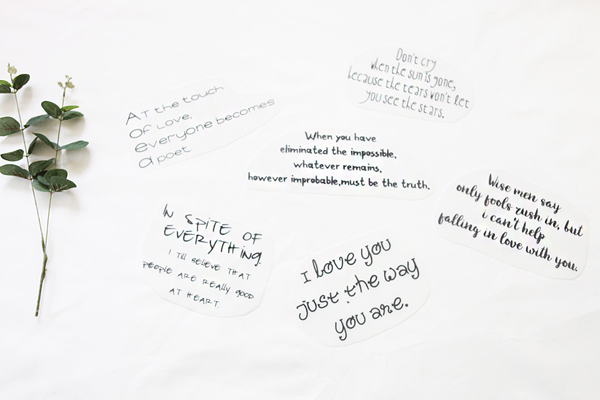 Don't cry
when the sun is gone,
because the tears won't let
you see the stars.
At the touch
of love,
everyone becomes
a poet
When you have
eliminated the impossible,
whatever remains,
however improbable,must be the truth.
Wise men say
only fools rush in, but
i can't help
falling in love with you.
IN SPITE OF
EVERYTHING
I I'll BELIEVE THAT
PEOPLE ARE REALLY GOOD
AT HEART.
I love you
just the way
you are.